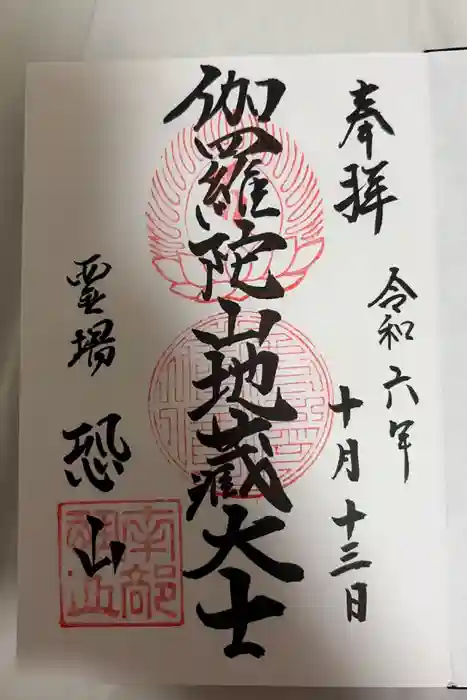 奉拝
令和六年
十月十三日
伽羅陀山地蔵大士
霊場
恐山
南部